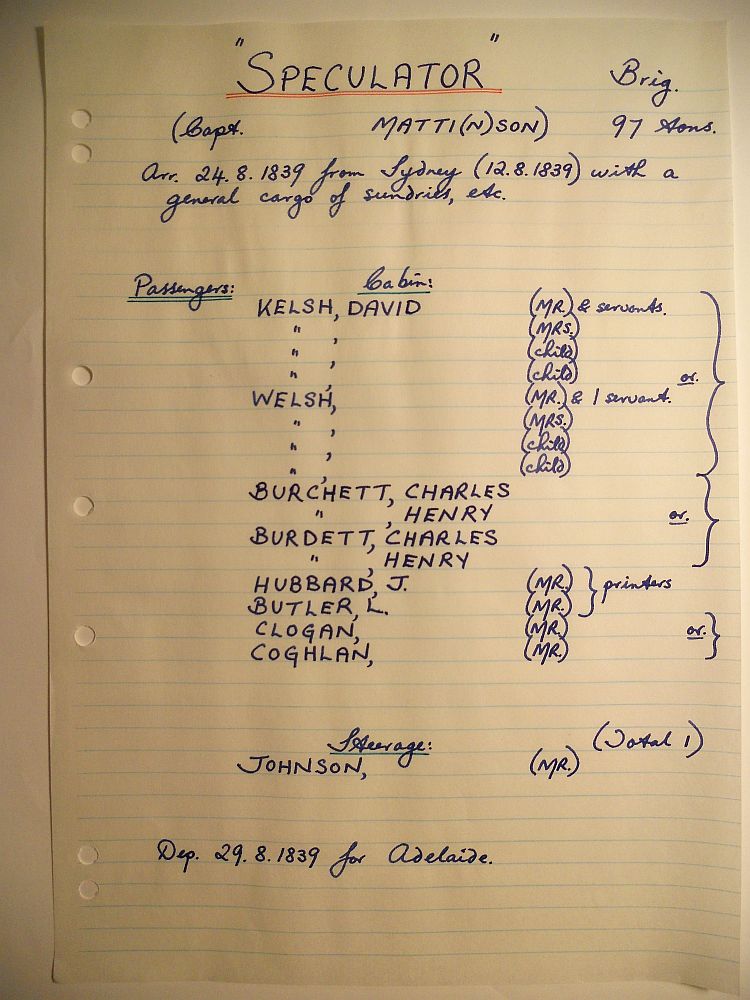 "SPECULATOR" Brig.
(Capt. MATTI(N)SON) 97 tons.
Arr. 24.8.1839 from Sydney (12.8.1839) with a
general cargo of sundries, etc.
Passengers: Cabin:
KELSH, DAVID (MR.) & servants.
" , (MRS.)
" , (child)
" , (child) or.
WELSH, (MR.) & 1 servant.
" , (MRS.)
" , (child)
" , (child)
BURCHETT, CHARLES
" , HENRY or.
BURDETT, CHARLES
" , HENRY
HUBBARD, J. (MR.) } printers
BUTLER, L. (MR.)
CLOGAN, (MR.) or. }
COGHLAN, (MR.)
Steerage: (Total 1)
JOHNSON, (MR.)
Dep. 29.8.1839 for Adelaide.